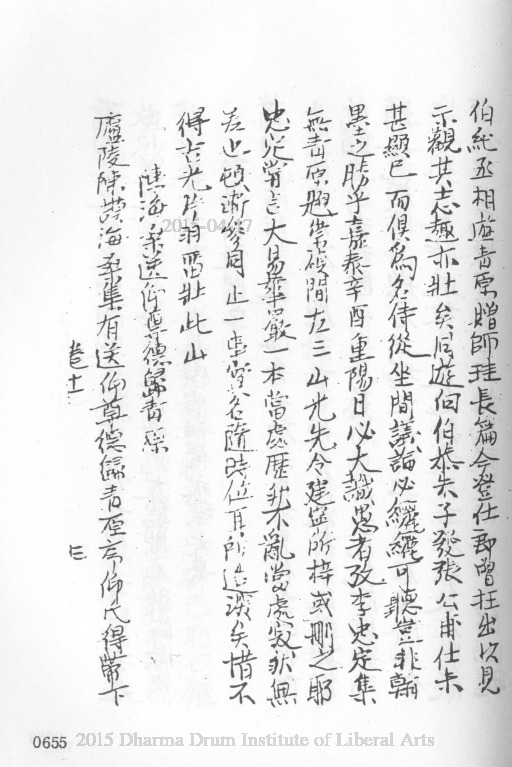 伯紀丞相遊青原贈師珪長篇今登仕郎曾枉出以見
示觀其志趣亦壯矣同遊向伯恭朱子發張公甫仕未
甚顯已而俱為名侍從坐間議論必纚纚可聽豈非翰
墨之勝乎嘉泰辛酉重陽日必大識愚者攷李忠定集
無青原題當彼間左三山尤先令建寧所梓或刪之耶
忠定嘗言大易華嚴一本當處歷然不亂當處寂然無
差也頓漸參同止一堂堂名隨時位耳所造深矣惜不
得吉光片羽留壯此山
陳海桑送仰尊德歸青原
廬陵陳謨海桑集有送仰尊德歸青原言仰氏得幣下
卷十一
三
2015-04-27
0655 2015 Dharma Drum Institute of Liberal Arts